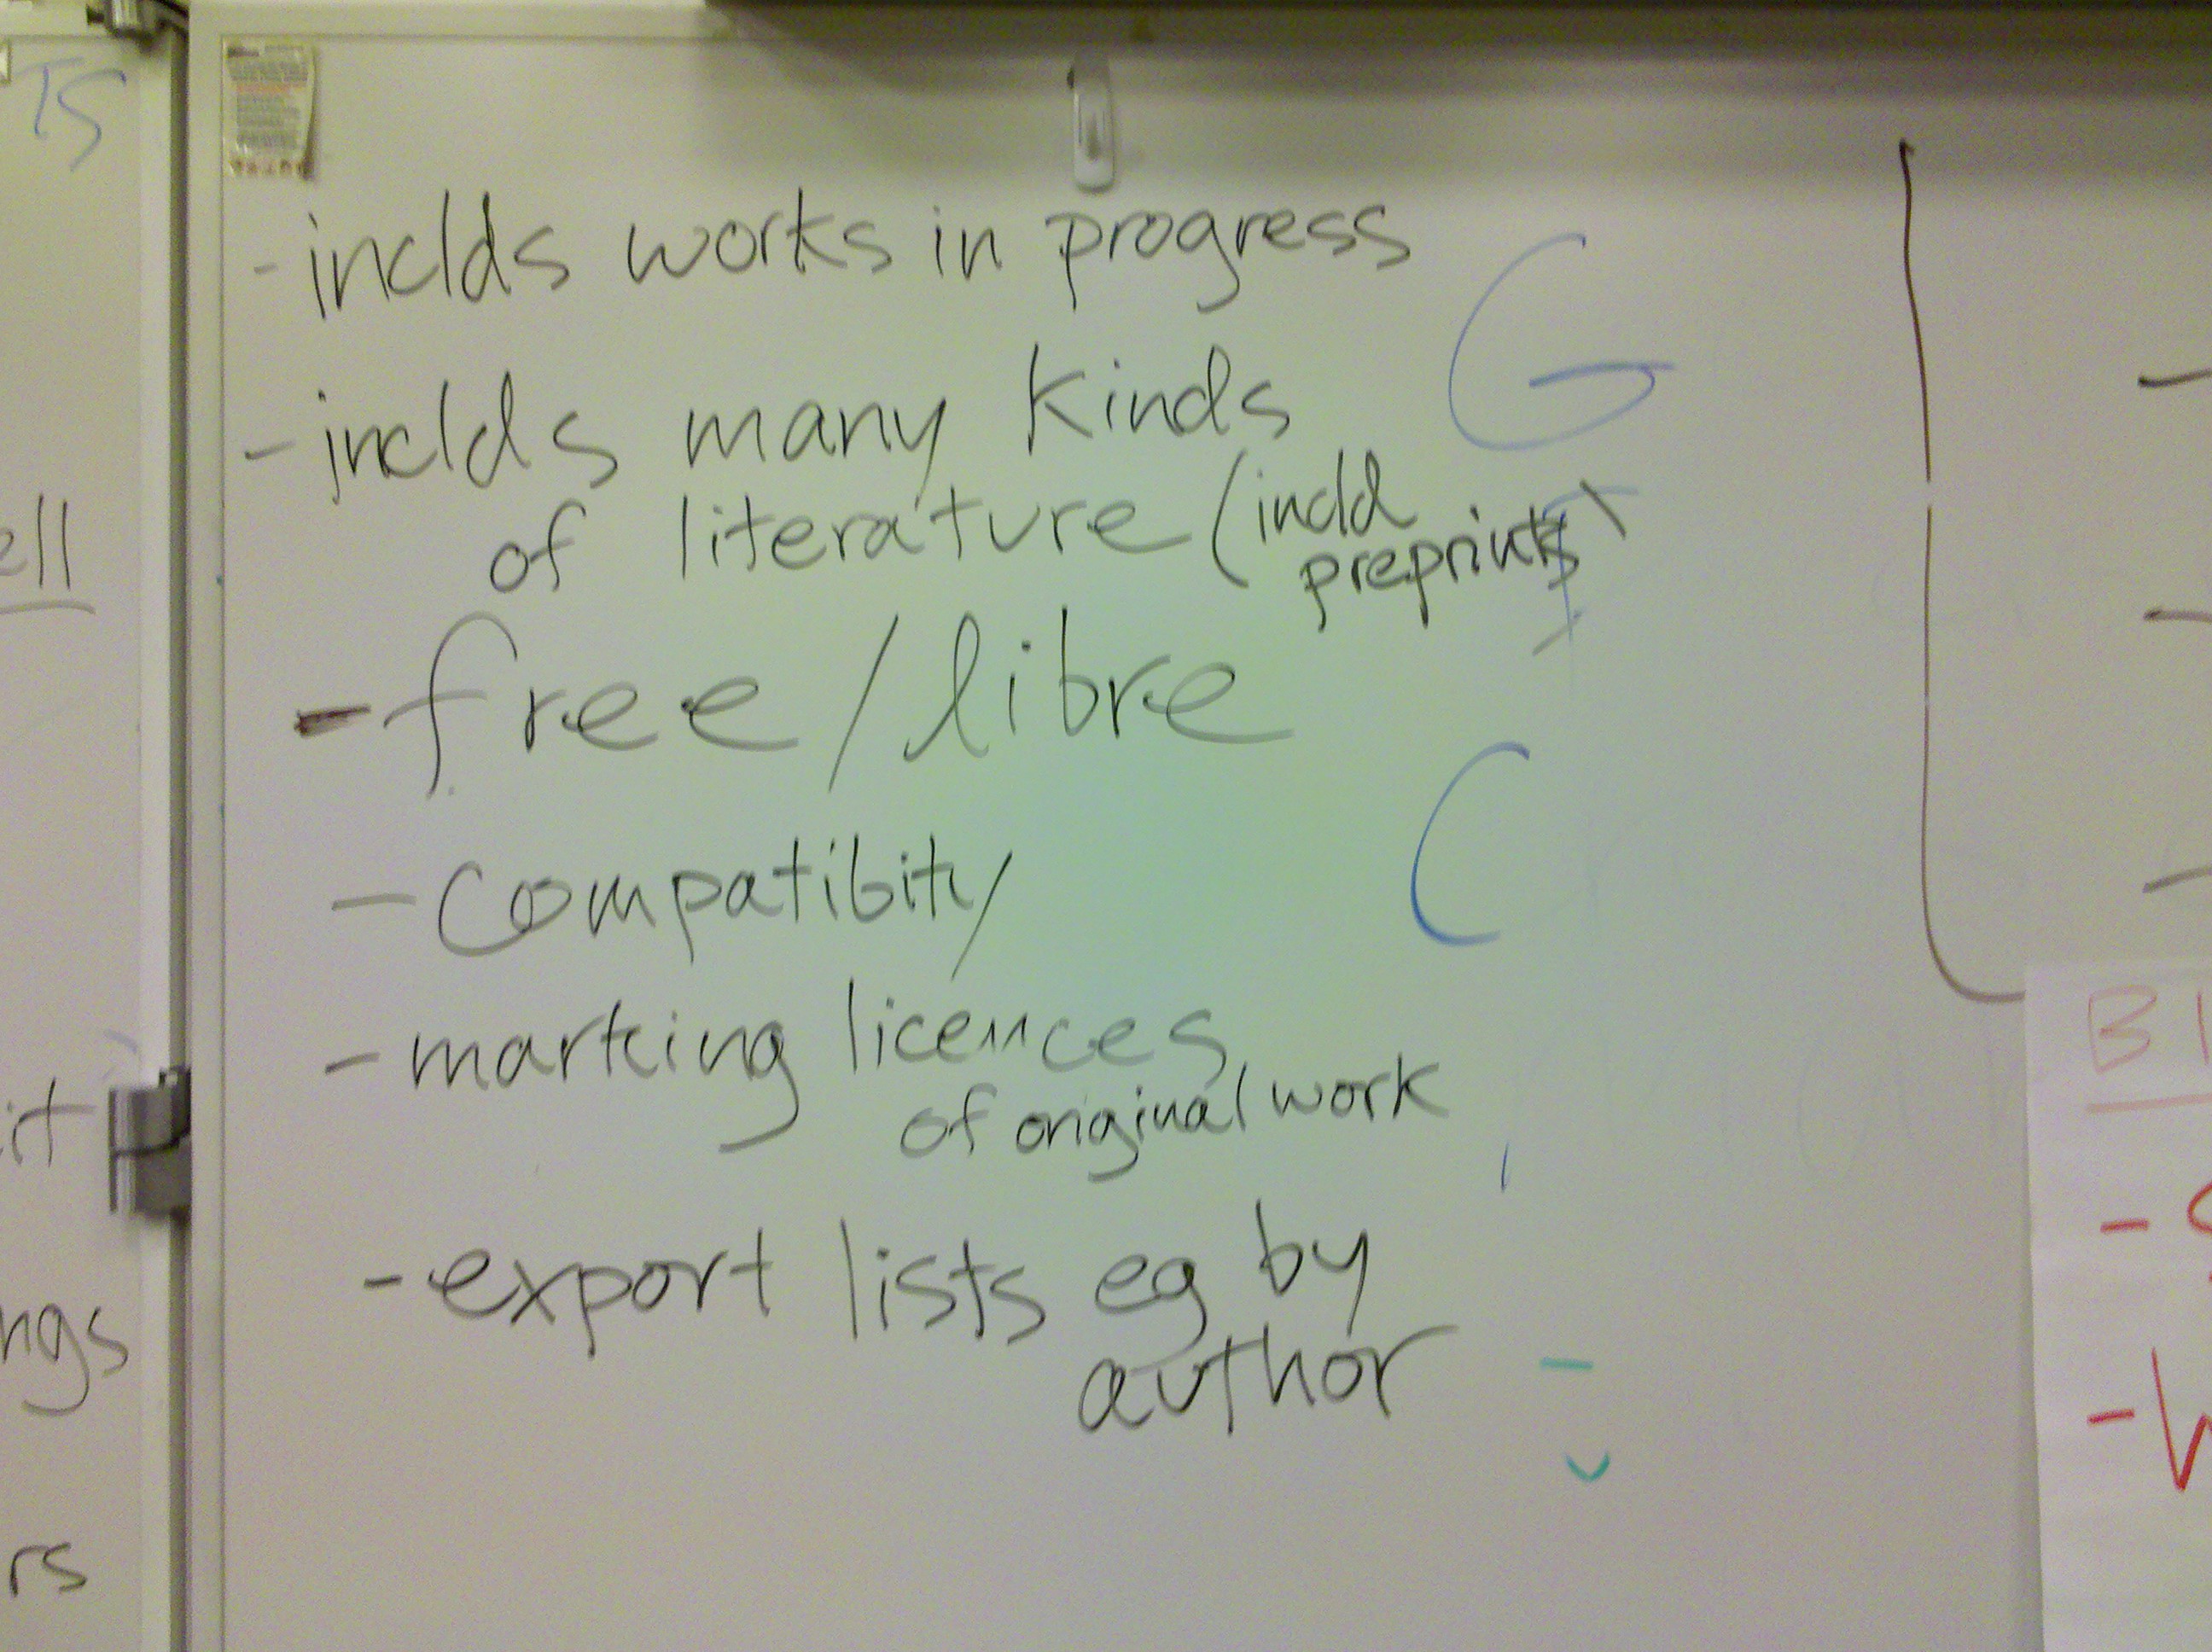 TS
ell
it
ngs
rs
- inclds works in progress
- inclds many kinds
of literature (incld
preprints)
- free/libre
- Compatibity
- marking licences
of original work
- export lists eg by
author
G
C
B